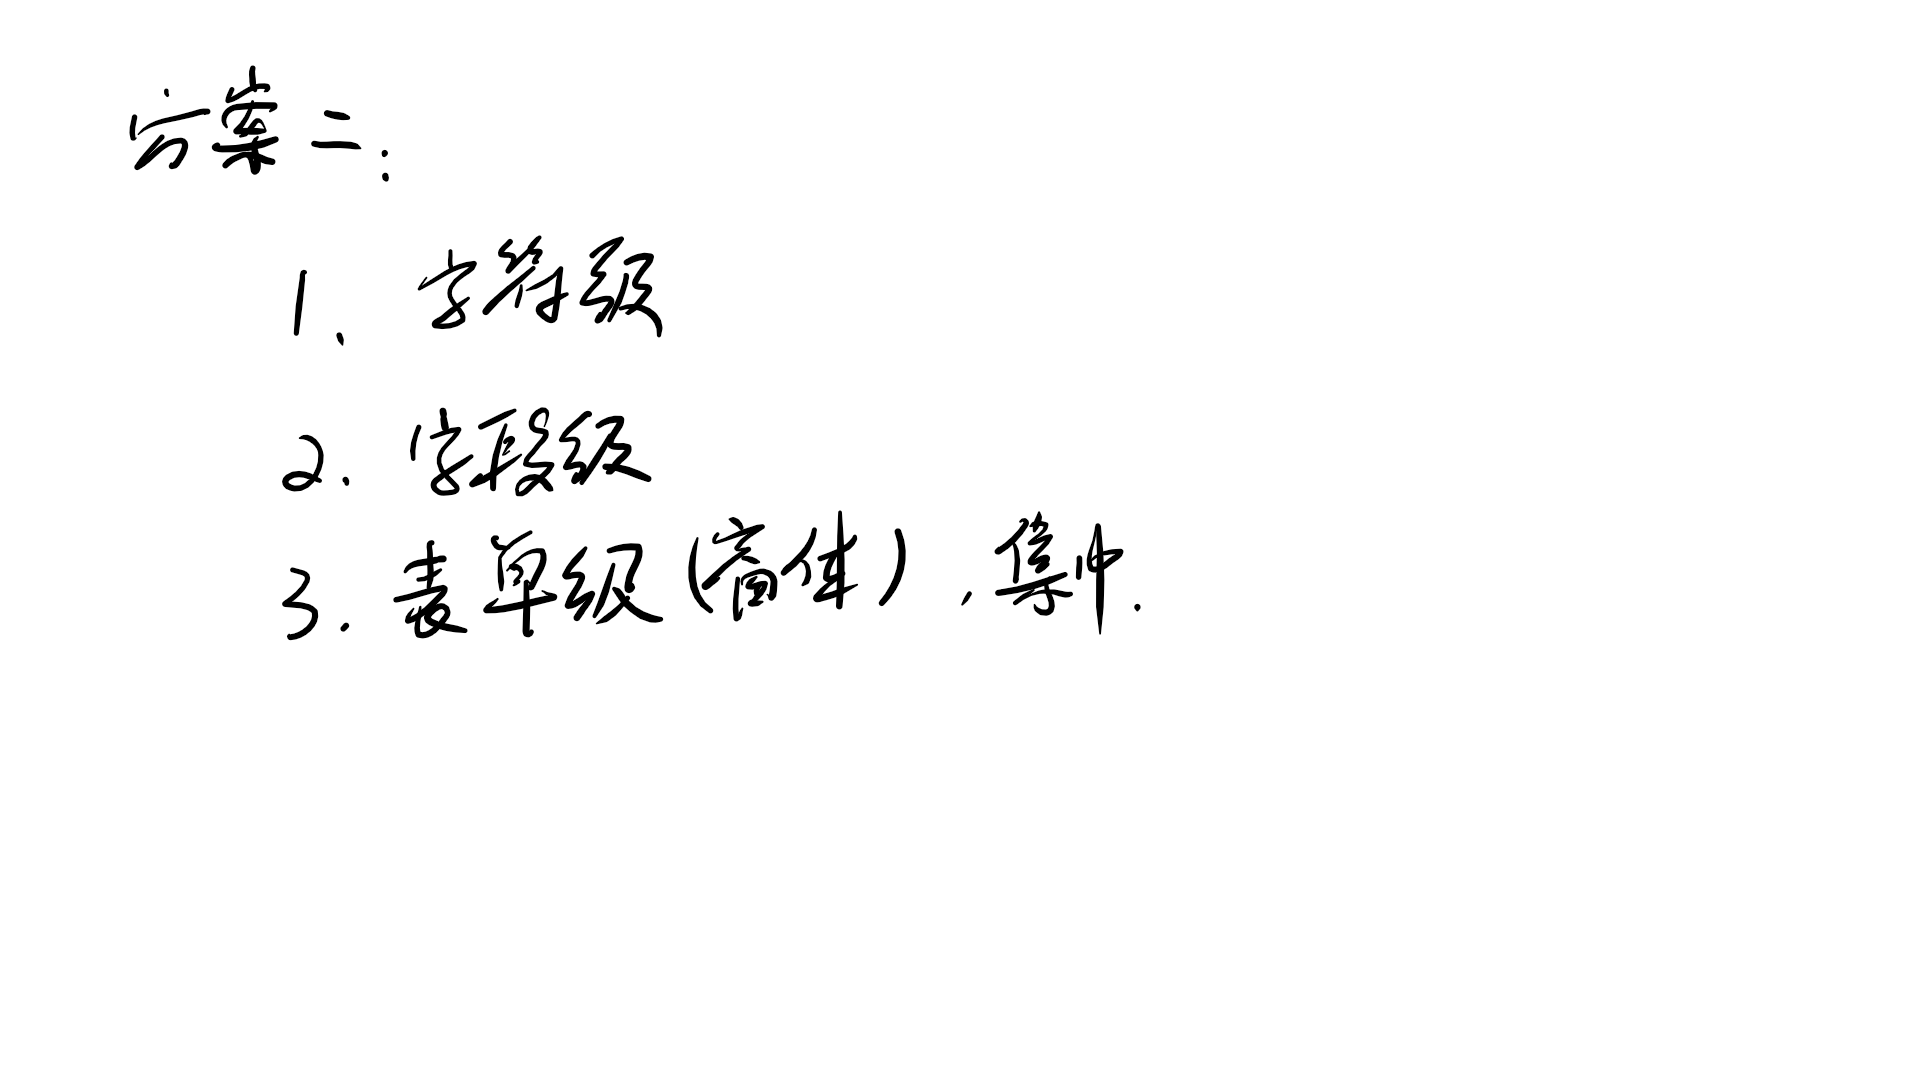 方案二:
1. 字符级
2. 字段级
3. 表单级(窗体), 集中.